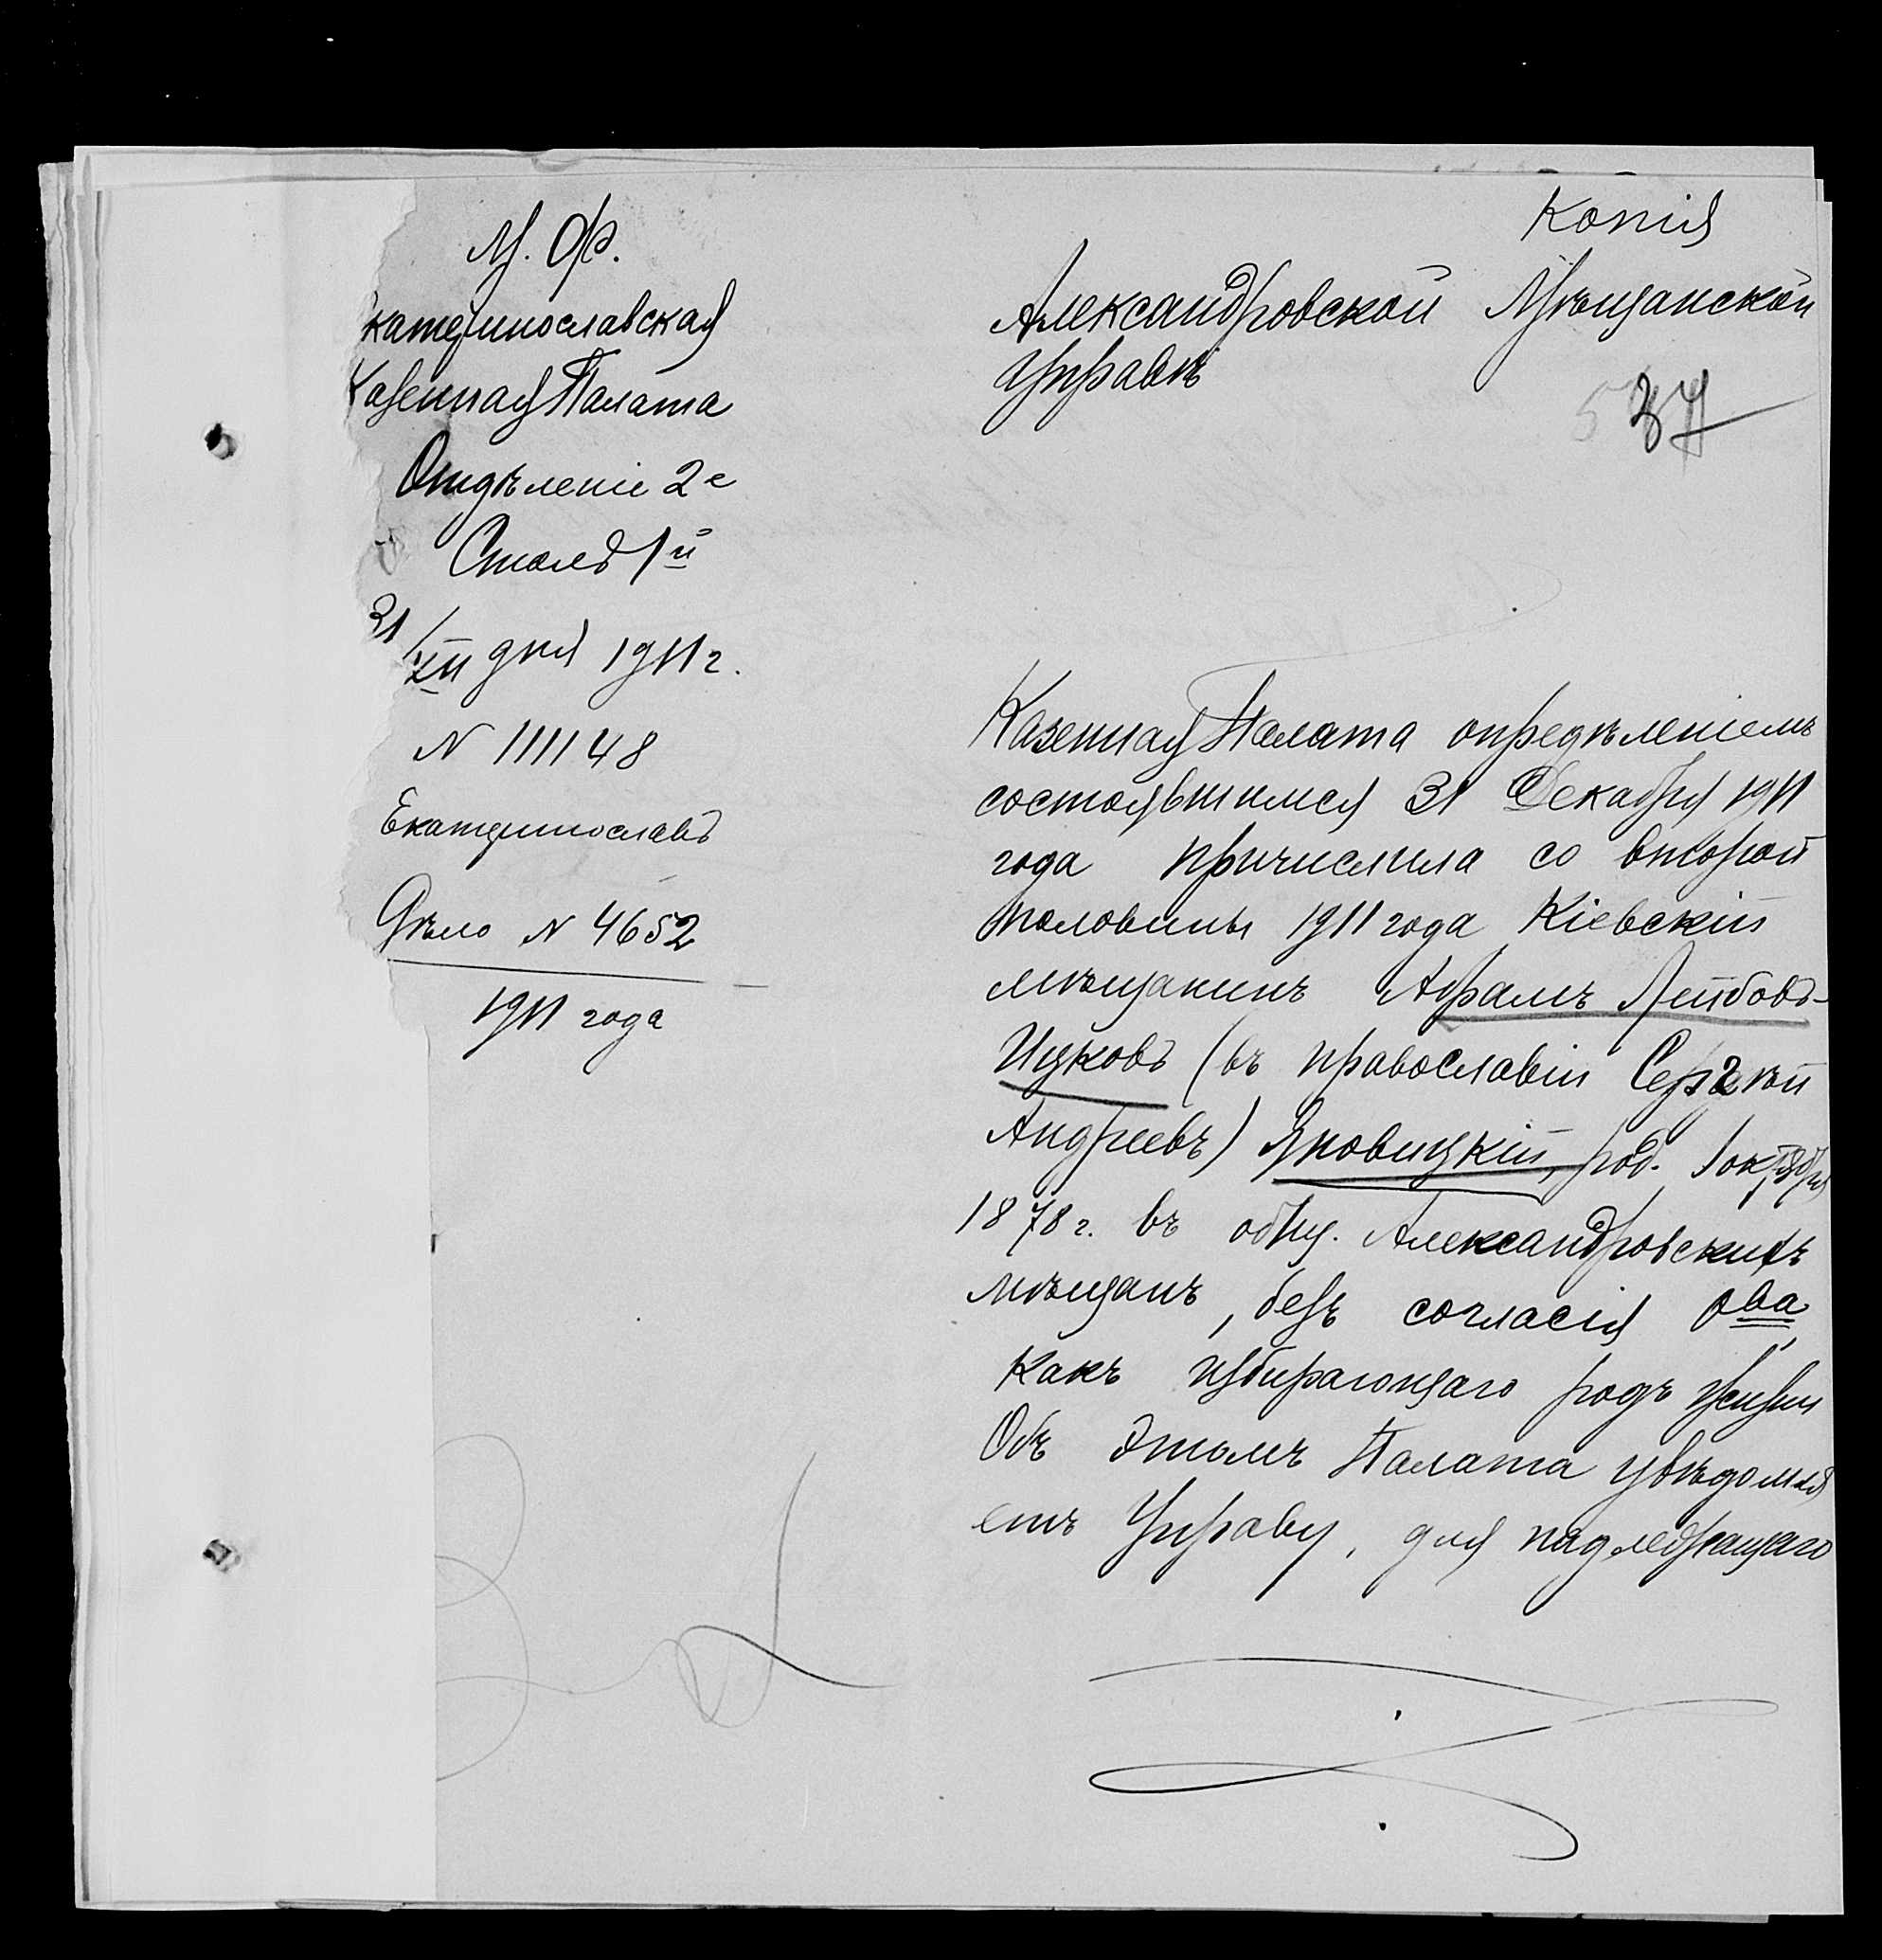 М. Ф.
Екатеринославская
Казенная Палата
Отдѣленіе 2е
Столъ 1й
31/XII дня 1911 г.
N 111148
Екатеринославъ
Дѣло N 4652
1911 года
Копія
Александровской Мѣщанской
Управѣ
37
Казенная Палата опредѣленіемъ
состоявшимся 31 Декабря 1911
года причислила со второй
половины 1911 года Кіевскій
мѣщанинъ Абрамъ Лейбовъ-
Ицковъ (въ православіи Сергѣй
Андреевъ) Яновицкій, род. 1 октября
1878 г. въ общ. Александровскихъ
мѣщанъ, безъ согласія ова,
какъ избирающаго родъ жизни
Объ этомъ Палата увѣдомля
етъ Управу, для надлежащаго